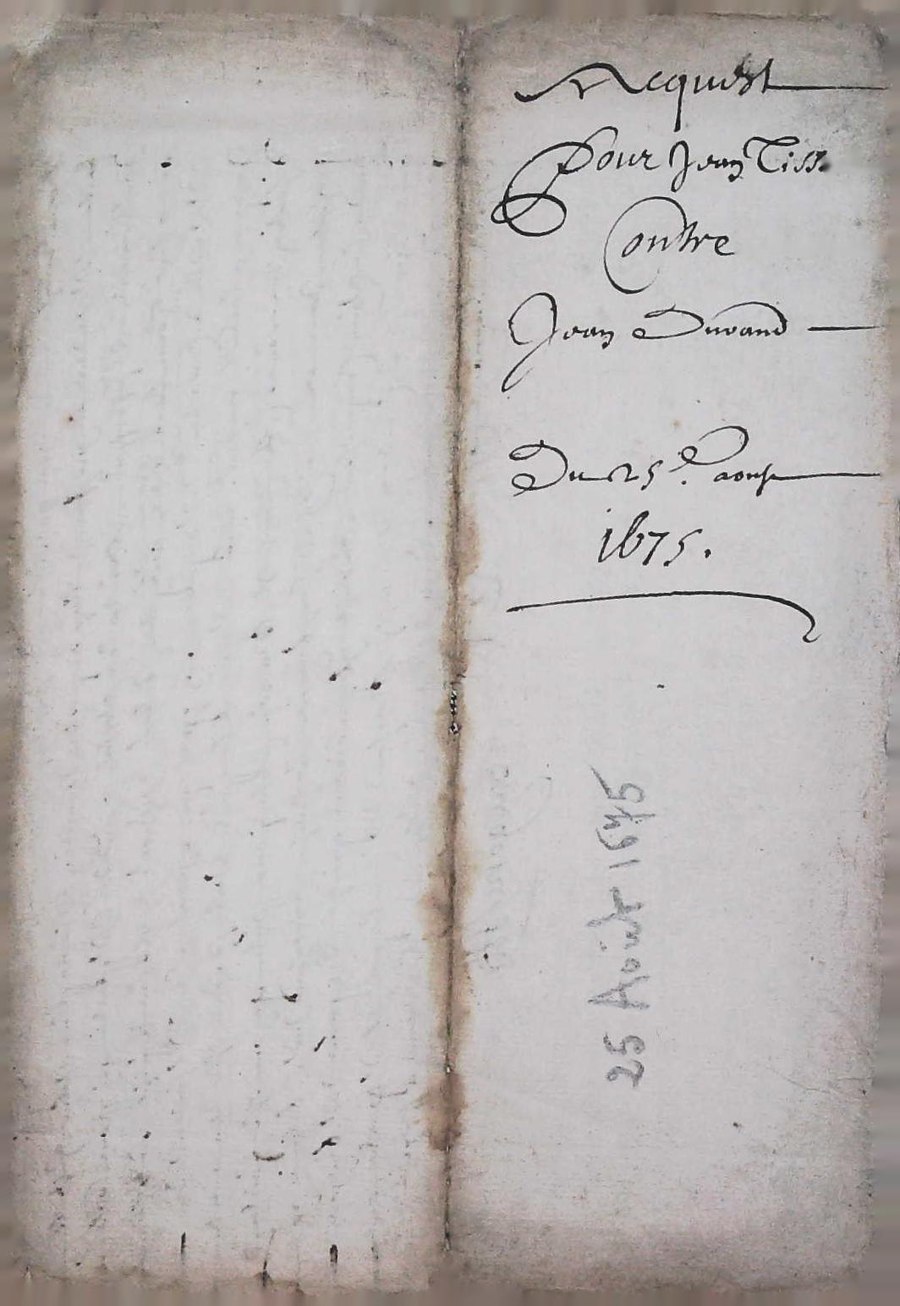 Acquest
Pour Jean Tiss.
Contre
Jean Durand
Du 25.e aoust
1675.
25 Août 1675